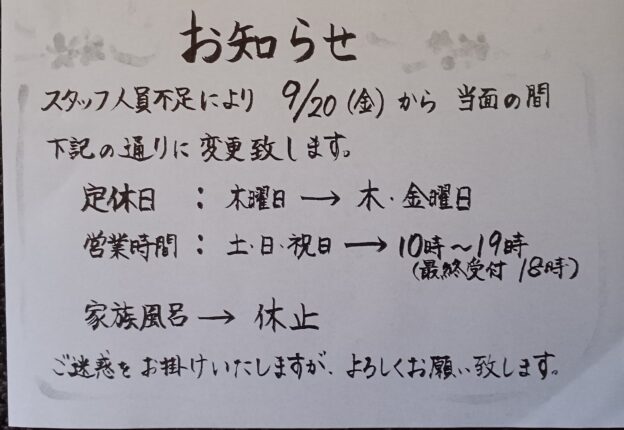 お知らせ
スタッフ人員不足により 9/20(金)から 当面の間
下記の通りに変更致します。
定休日 : 木曜日 → 木・金曜日
営業時間 : 土・日・祝日 → 10時～19時
(最終受付 18時)
家族風呂 → 休止
ご迷惑をお掛けいたしますが、よろしくお願い致します。